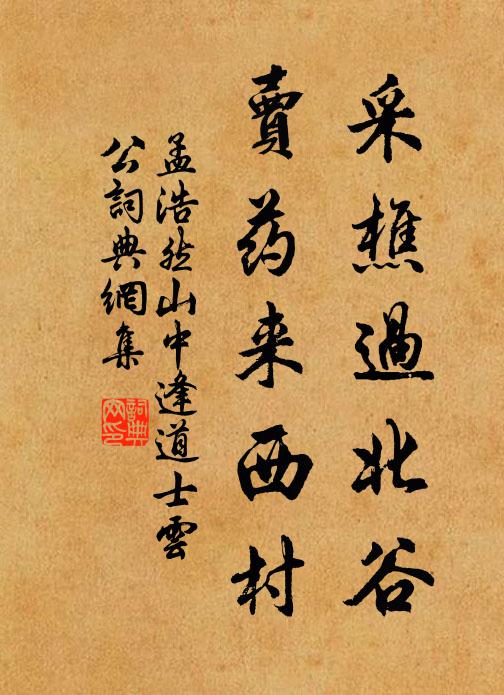 采樵過北谷
賣药来西村
孟浩然山中逢道士雲
公詞典網集
詞典網印